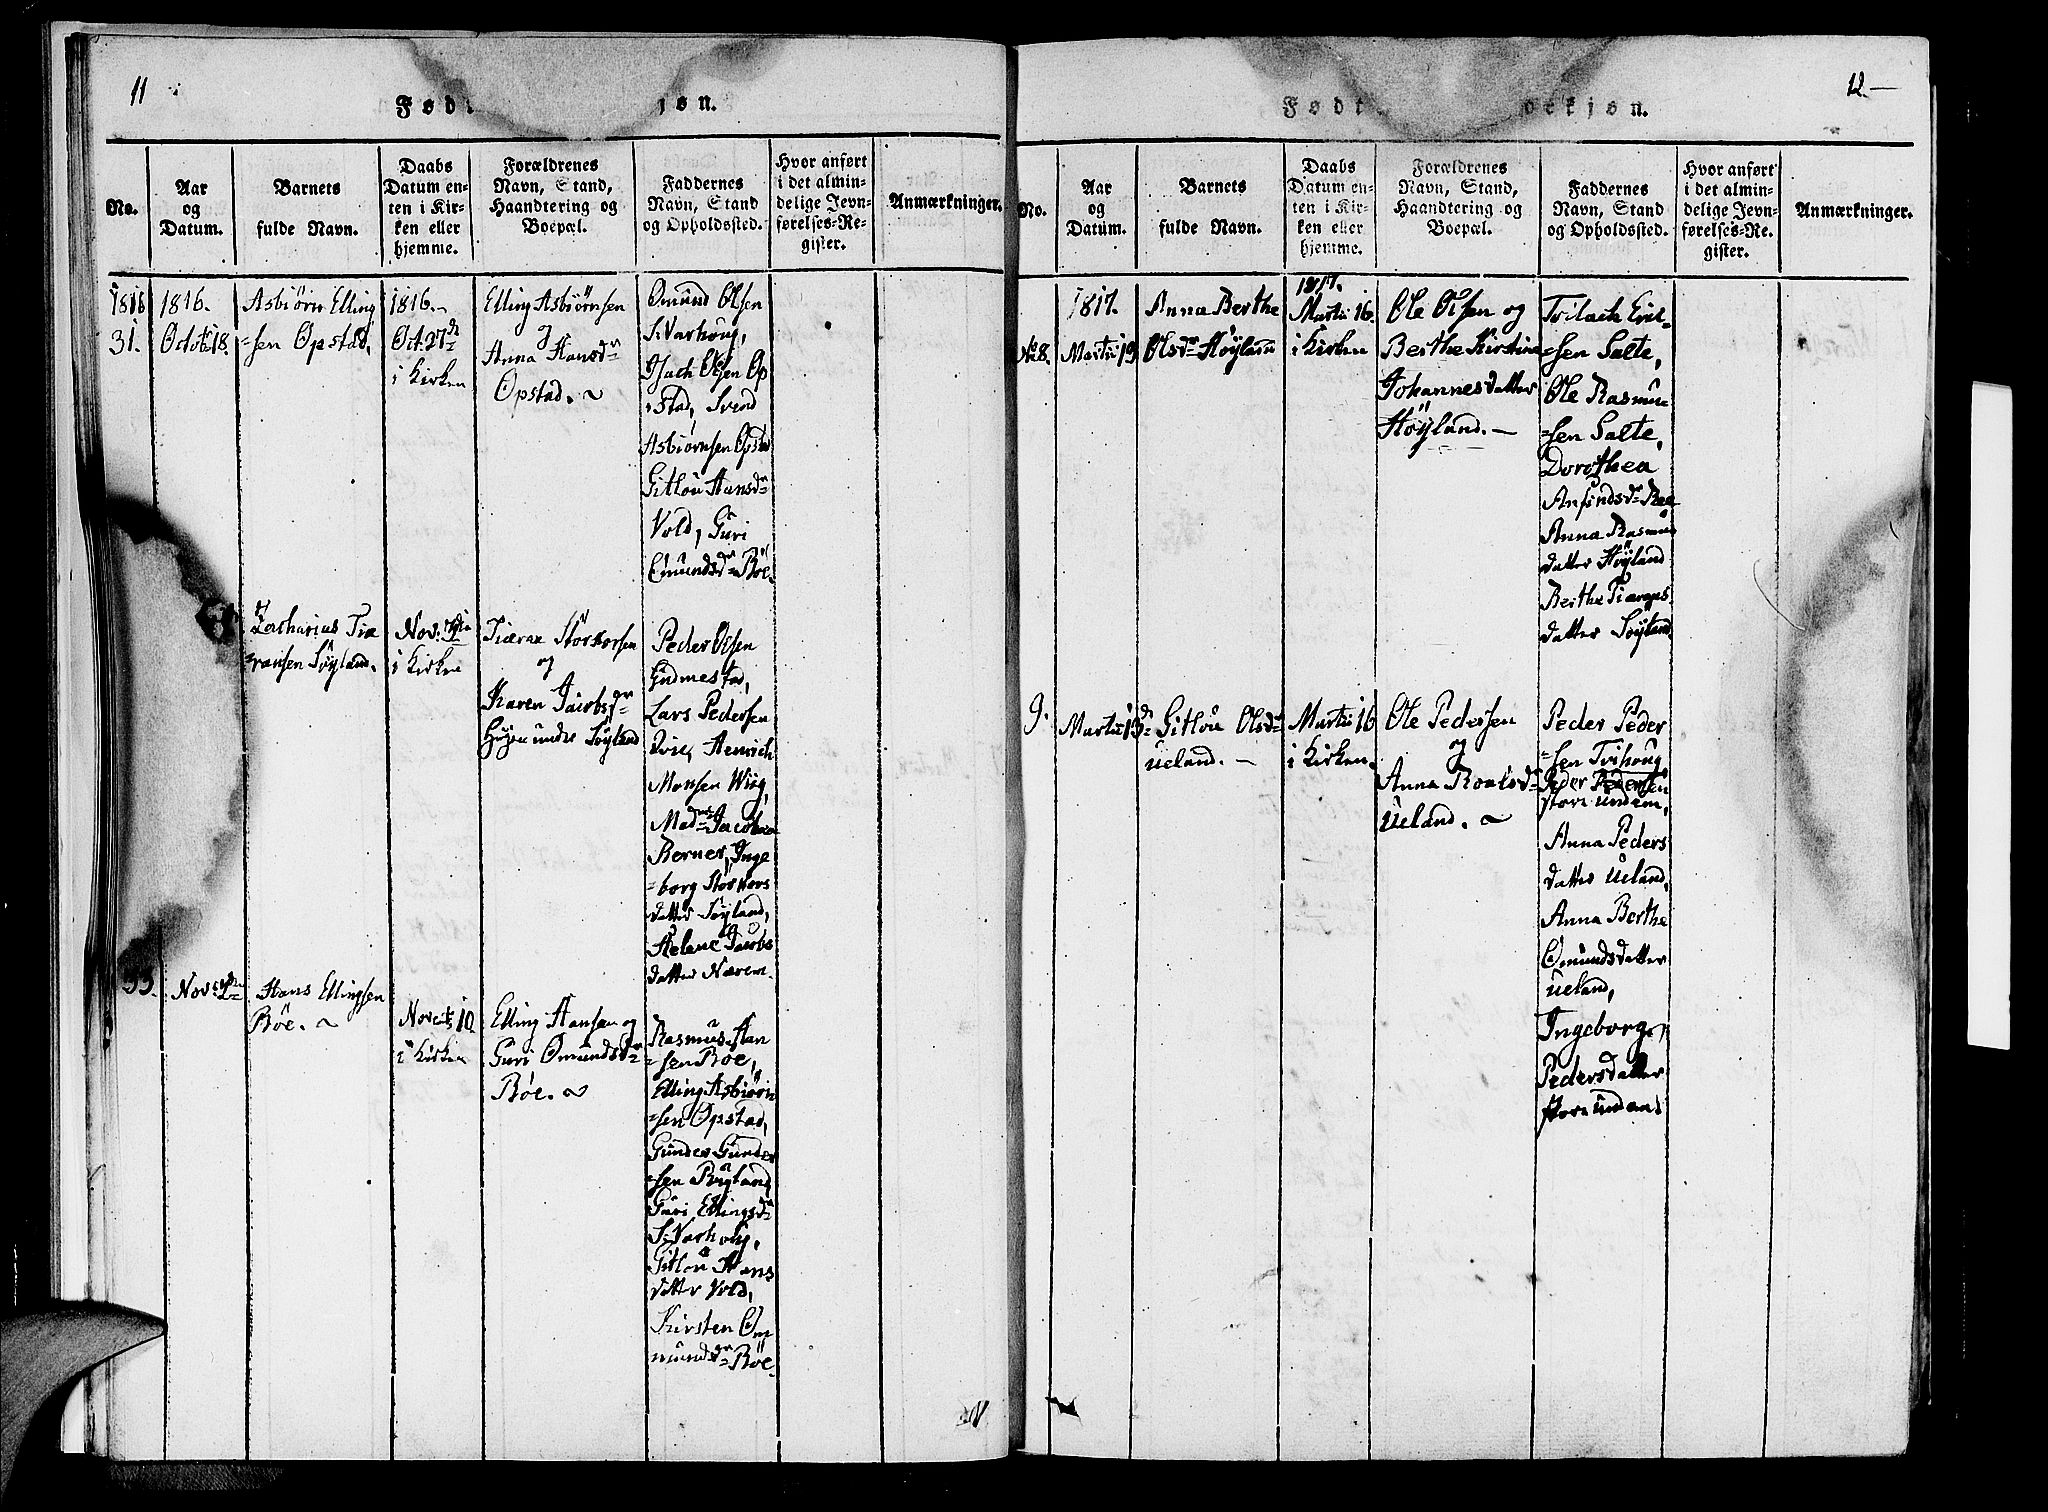 11
Fød
jøn.
No.
Aar
og
Datum.
Barnets
fulde Navn.
Daabs
Datum en-
ten i Kir-
ken eller
hjemme.
Forældrenes
Navn, Stand,
Haandtering og
Boepæl.
Faddernes
Navn, Stand
og Opholdssted.
Hvor anført
i det almin-
delige Jevn-
førelses-Re-
gister.
Anmærkninger.
1816
31.
1816.
Octob: 18.
Asbiørn Elling
=sen Opstad,
1816.
Oct. 27de
i Kirken
Elling Asbiørnsen
og
Anna Hansdr
Opstad.
Omund Olsen
S. Varhoug,
Isach Olsen Op
=stad, Svend
Asbiørnsen Opstad
Gitlou Hansdr
Vold, Guri
Omundsdr Böe.
Zacharius Tiæ
=ransen Söyland.
Nov:
i Kirken
Tiæran Störkersen
og
Karen Jacobsdr
under Söyland
Peder Olsen
Gudmestad,
Lars Pedersen
Henrich
Monsen Wiig,
Madme Jacobine
Berner, Inge
=borg Störkers
datter Söyland,
Helene Jacobs
datter Nærem.
33.
Nov:
Hans Ellingsen
Böe.
Novemb 10
i Kirken
Elling Hansen og
Guri Omundsdr
Böe.
Rasmus Han
=sen Böe,
Elling Asbiørn
=sen Opstad,
Gunder Gunder
=sen Ryland
Guri Ellingsdr
S. Varhoug,
Gitlou Hans
datter Vold,
Kirsten Om
mundsdr Böe
12.
Født
ekjøn.
No.
Aar
og
Datum.
Barnets
fulde Navn.
Daabs
Datum en-
ten i Kir-
ken eller
hjemme.
Forældrenes
Navn, Stand,
Haandtering og
Boepæl.
Faddernes
Navn, Stand
og Opholdssted.
Hvor anført
i det almin-
delige Jevn-
førelses-Re-
gister.
Anmærkninger.
No 8.
1817.
Martii
Anna Berthe
Olsdr Höyland
1817.
Martii 16.
i Kirken
Ole Olsen og
Berthe Kirstine
Johannesdatter
Höyland.
Erik-
=sen Salte,
Ole Rasmu-
=sen Salte,
Dorothea
Anna Rasmus
datter Höyland
Berthe Tiærans
datter Söyland.
9.
Martii 13d
Gitlou Olsdr
Ueland.
Martii 16
i Kirken.
Ole Pedersen
og
Anna Roalsdr
Ueland.
Peder Peder
=sen Tvihoug
Peder Pedersen
store Undem,
Anna Peders
datter Ueland,
Anna Berthe
Omundsdatter
Ueland,
Ingeborg
Pedersdatter
store Undem